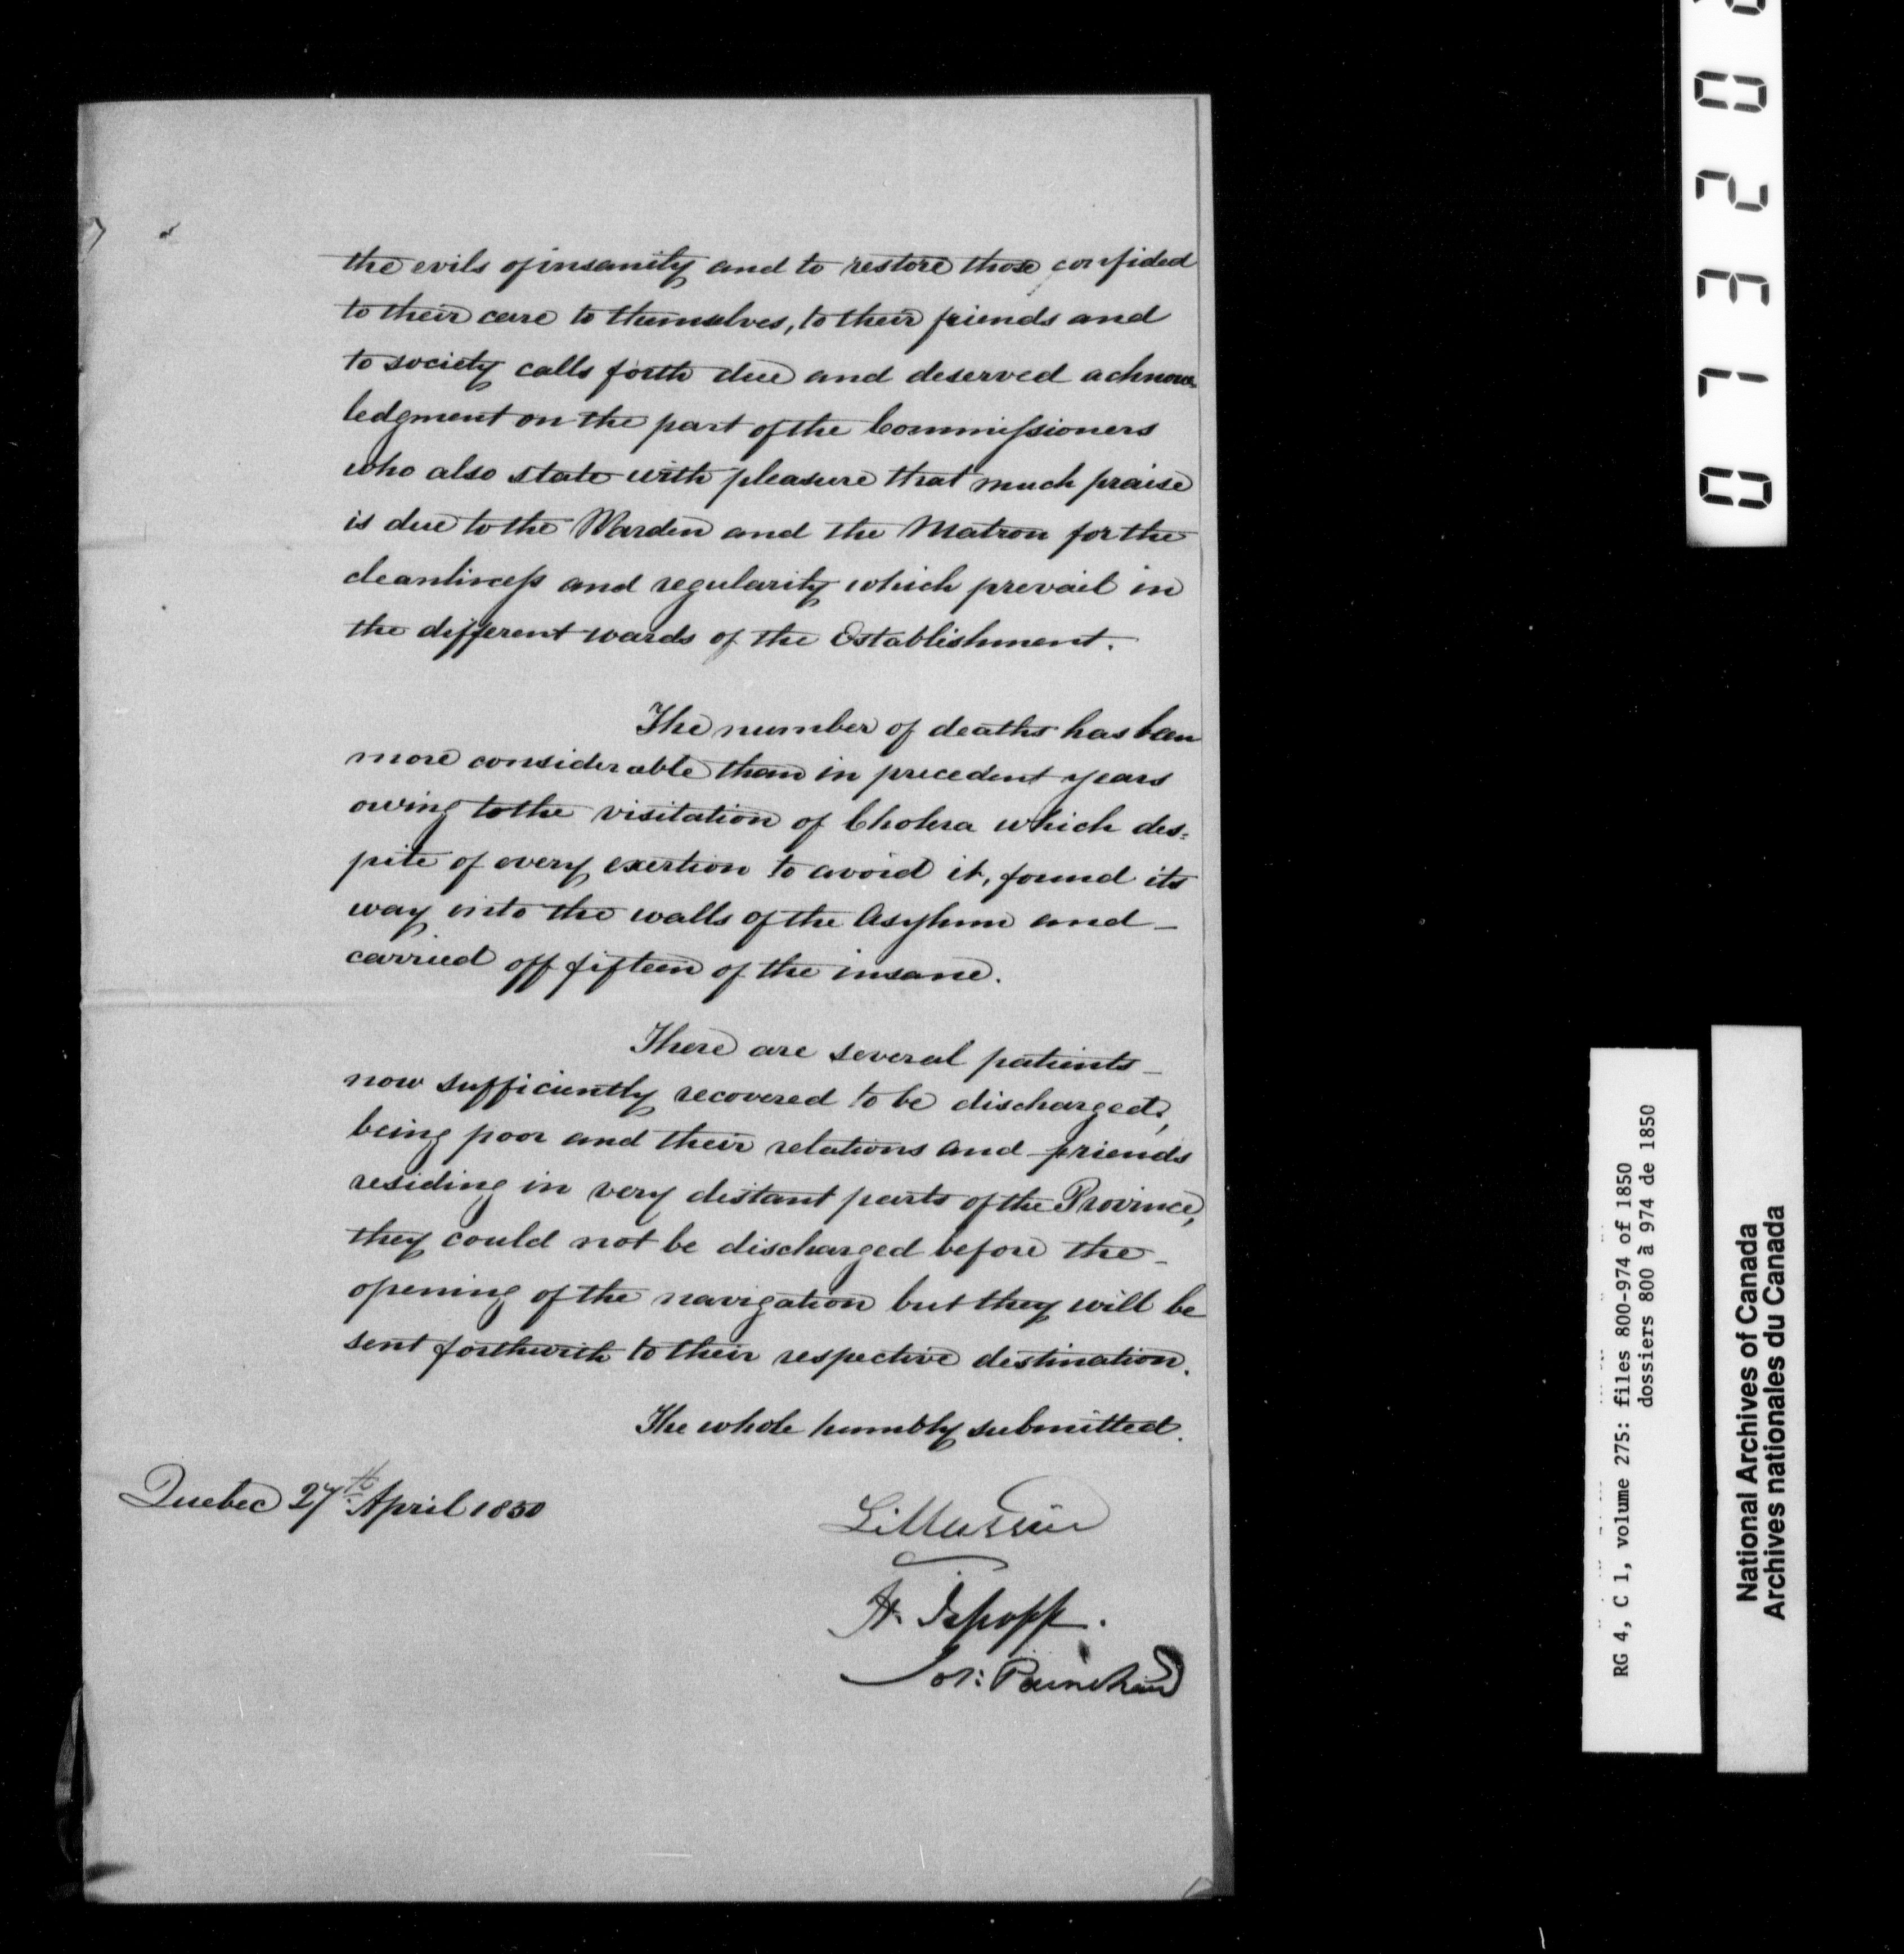 the evils of insanity and to restore those confided
to their care to themselves, to their friends and
to society calls forth due and deserved acknow=
ledgment on the part of the Commissioners
who also state with pleasure that much praise
is due to the Warden and the Matron for the
cleanliness and regularity which prevail in
the different wards of the Establishment.
The number of deaths has been
more considerable than in precedent years
owing to the visitation of Cholera which des=
pite of every exertion to avoid it, found its
way into the walls of the Asylum and
carried off fifteen of the insane.
There are several patients
now sufficiently recovered to be discharged,
being poor and their relations and friends
residing in very distant parts of the Province,
they could not be discharged before the
opening of the navigation but they will be
sent forthwith to their respective destination.
The whole humbly submitted.
Quebec 27th April 1850
Jos: Painchaud
07320
RG 4, C 1, volume 275: files 800-974 of 1850
dossiers 800 à 974 de 1850
National Archives of Canada
Archives nationales du Canada